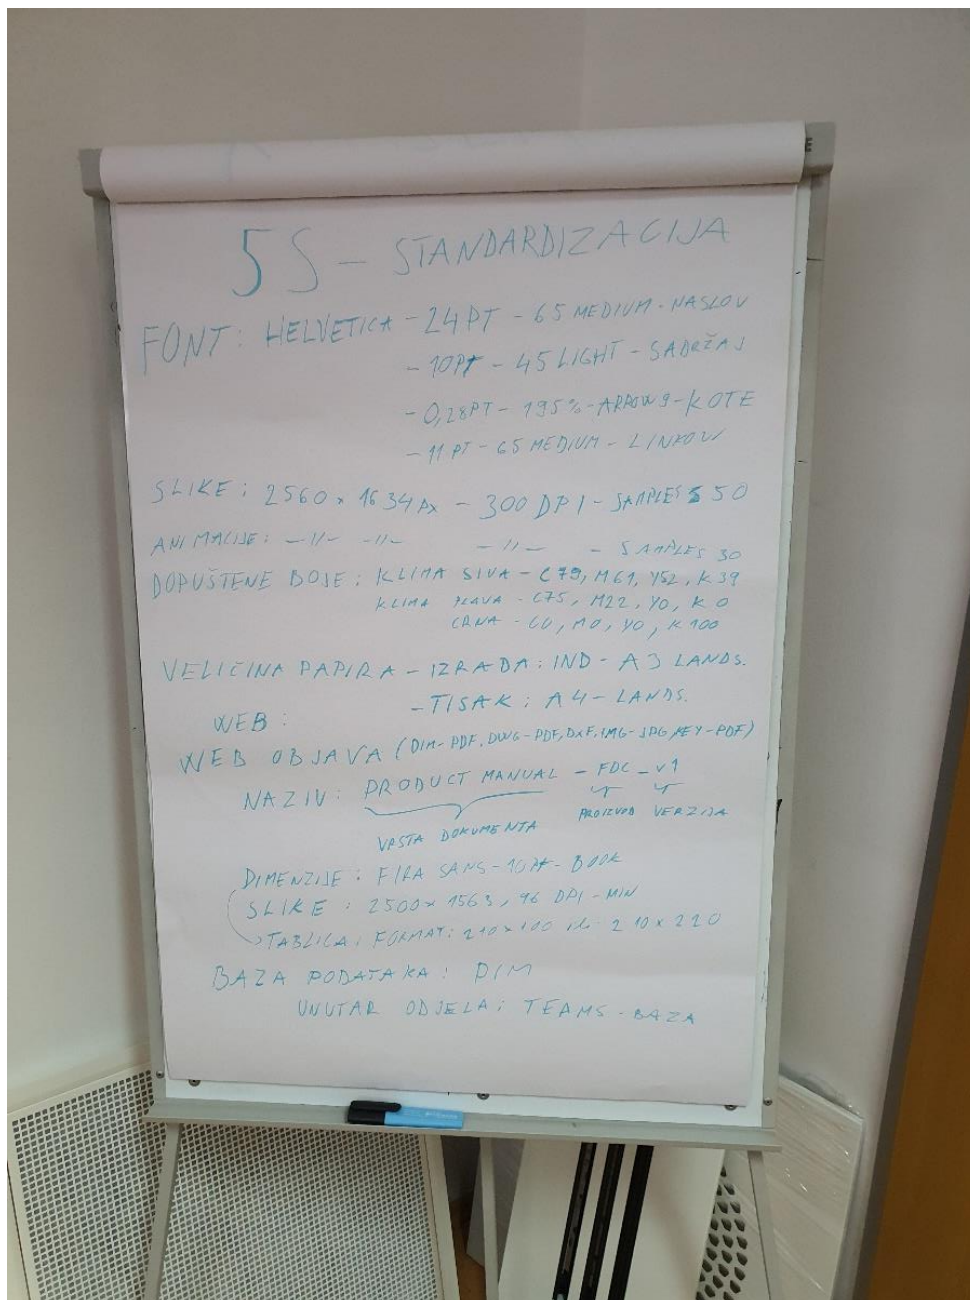 5S – STANDARDIZACIJA
FONT: HELVETICA - 24PT - 65 MEDIUM - NASLOV
- 10PT - 45 LIGHT - SADRŽAJ
- 0,28PT - 195% - ARROW 9 - KOTE
- 11 PT - 65 MEDIUM - LINKOVI
SLIKE: 2560 x 1634 px - 300 DPI - SAMPLES 50
ANIMACIJE: -//- -//- -//- - SAMPLES 30
DOPUŠTENE BOJE: KLIMA SIVA - C79, M61, Y52, K39
KLIMA PLAVA - C75, M22, Y0, K0
CRNA - C0, M0, Y0, K100
VELIČINA PAPIRA - IZRADA: IND - A3 LANDS.
- TISAK: A4 - LANDS.
WEB:
WEB OBJAVA (DIM-PDF, DWG-PDF, DXF, IMG-JPG, KEY-PDF)
NAZIV: PRODUCT MANUAL - FDC - v1
VRSTA DOKUMENTA PROIZVOD VERZIJA
DIMENZIJE: FIRA SANS - 10PT - BOOK
SLIKE: 2500 x 1563, 96 DPI - MIN
TABLICA: FORMAT: 210x100 ili 210x220
BAZA PODATAKA: PIM
UNUTAR ODJELA: TEAMS - BAZA